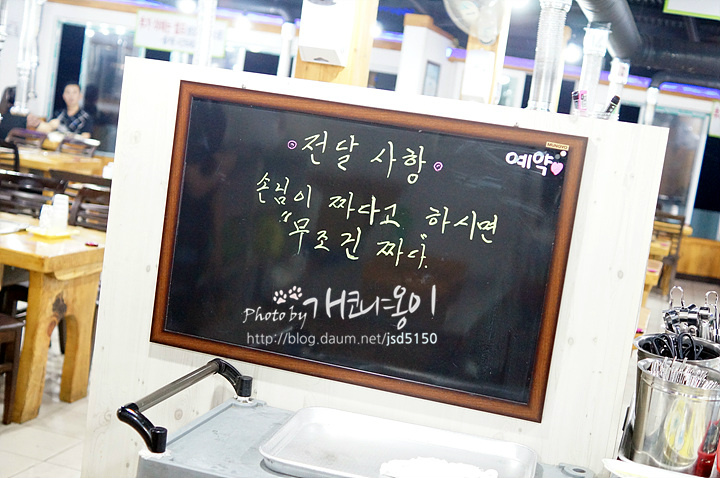 전달 사항
MUNGYO
예약
손님이 짜다고 하시면
"무조건 짜다".
Photo by 개코냐옹이
http://blog.daum.net/jsd5150